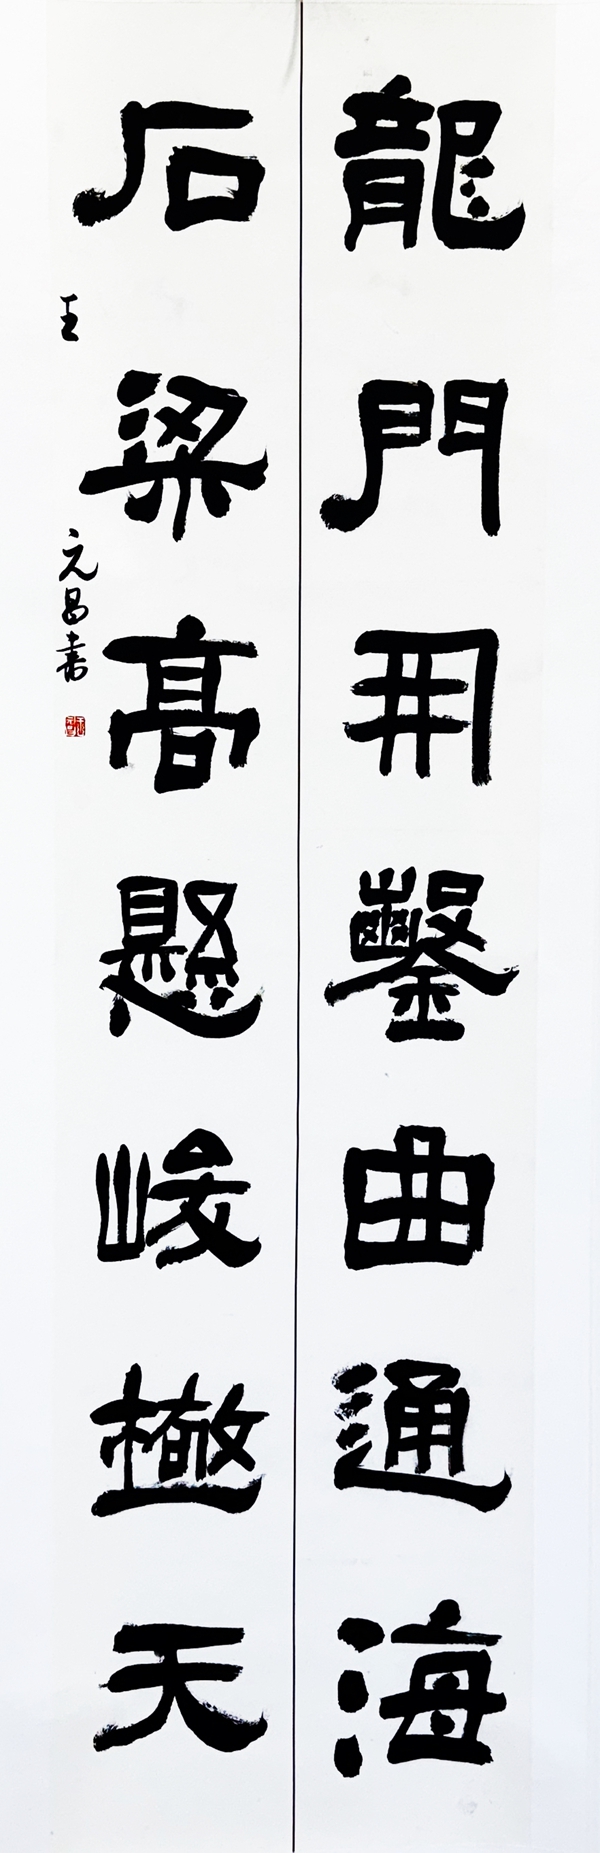 龍門用鑿曲通海
石梁高懸峻極天
王元昌書